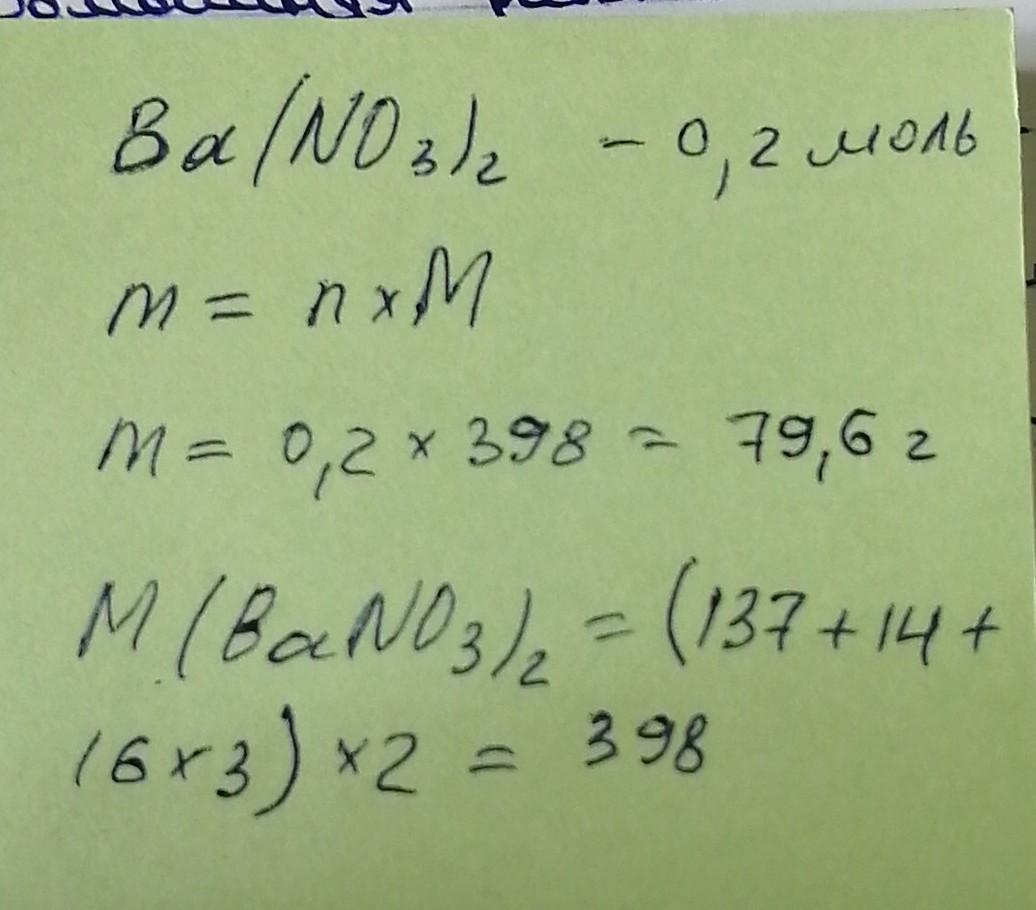 Ba(NO₃)₂ - 0,2 моль
m = n × M
m = 0,2 × 398 = 79,6 г
M(BaNO₃)₂ = (137 + 14 +
16 × 3) × 2 = 398